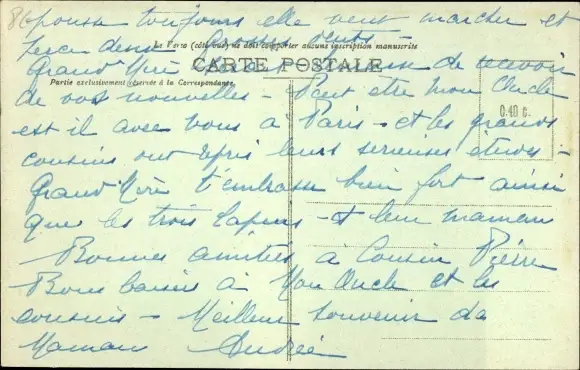 repousse toujours elle veut marcher et
percer deux grosses dents -
Le Verso (côté vue) ne doit comporter aucune inscription manuscrite
Grand'Mère de recevoir
CARTE POSTALE
Partie exclusivement réservée à la Correspondance.
de vos nouvelles - Peut être mon Oncle
0.40 c.
est il avec vous à Paris - et les grands
cousins ont repris leurs serieuses études -
Grand'Mère t'embrasse bien fort ainsi
que les trois lapins - et leur maman
Bonnes amitiés à Cousin Pierre
Bons baisers à Mon Oncle et les
cousins - Meilleur souvenir de
Maman Andrée